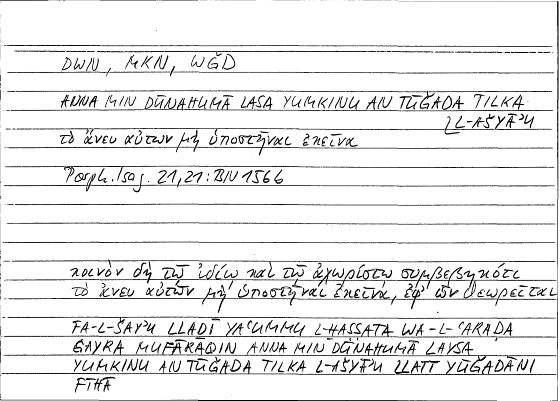 DWN, MKN, WĞD
ANNA MIN DŪNAHUMĀ LASA YUMKINU AN TŪĞADA TILKA
L-AŠYĀʾU
τὸ ἄνευ αὐτῶν μὴ ὑποστῆναι ἐκεῖνα
Porph. Isag. 21,21: BN 156b
κοινὸν δὴ τῷ ἰδίῳ καὶ τῷ ἀχωρίστῳ συμβεβηκότι
τὸ ἄνευ αὐτῶν μὴ ὑποστῆναι ἐκεῖνα, ἐφ' ὧν θεωρεῖται
FA-L-ŠAYʾU LLADĪ YAʿUMMU L-HASSATA WA-L-ʿARADA
ĠAYRA MUFĀRAQIN ANNA MIN DŪNAHUMĀ LAYSA
YUMKINU AN TŪĞADA TILKA L-AŠYĀʾU LLATĪ YŪĞADĀNI
FĪHĀ